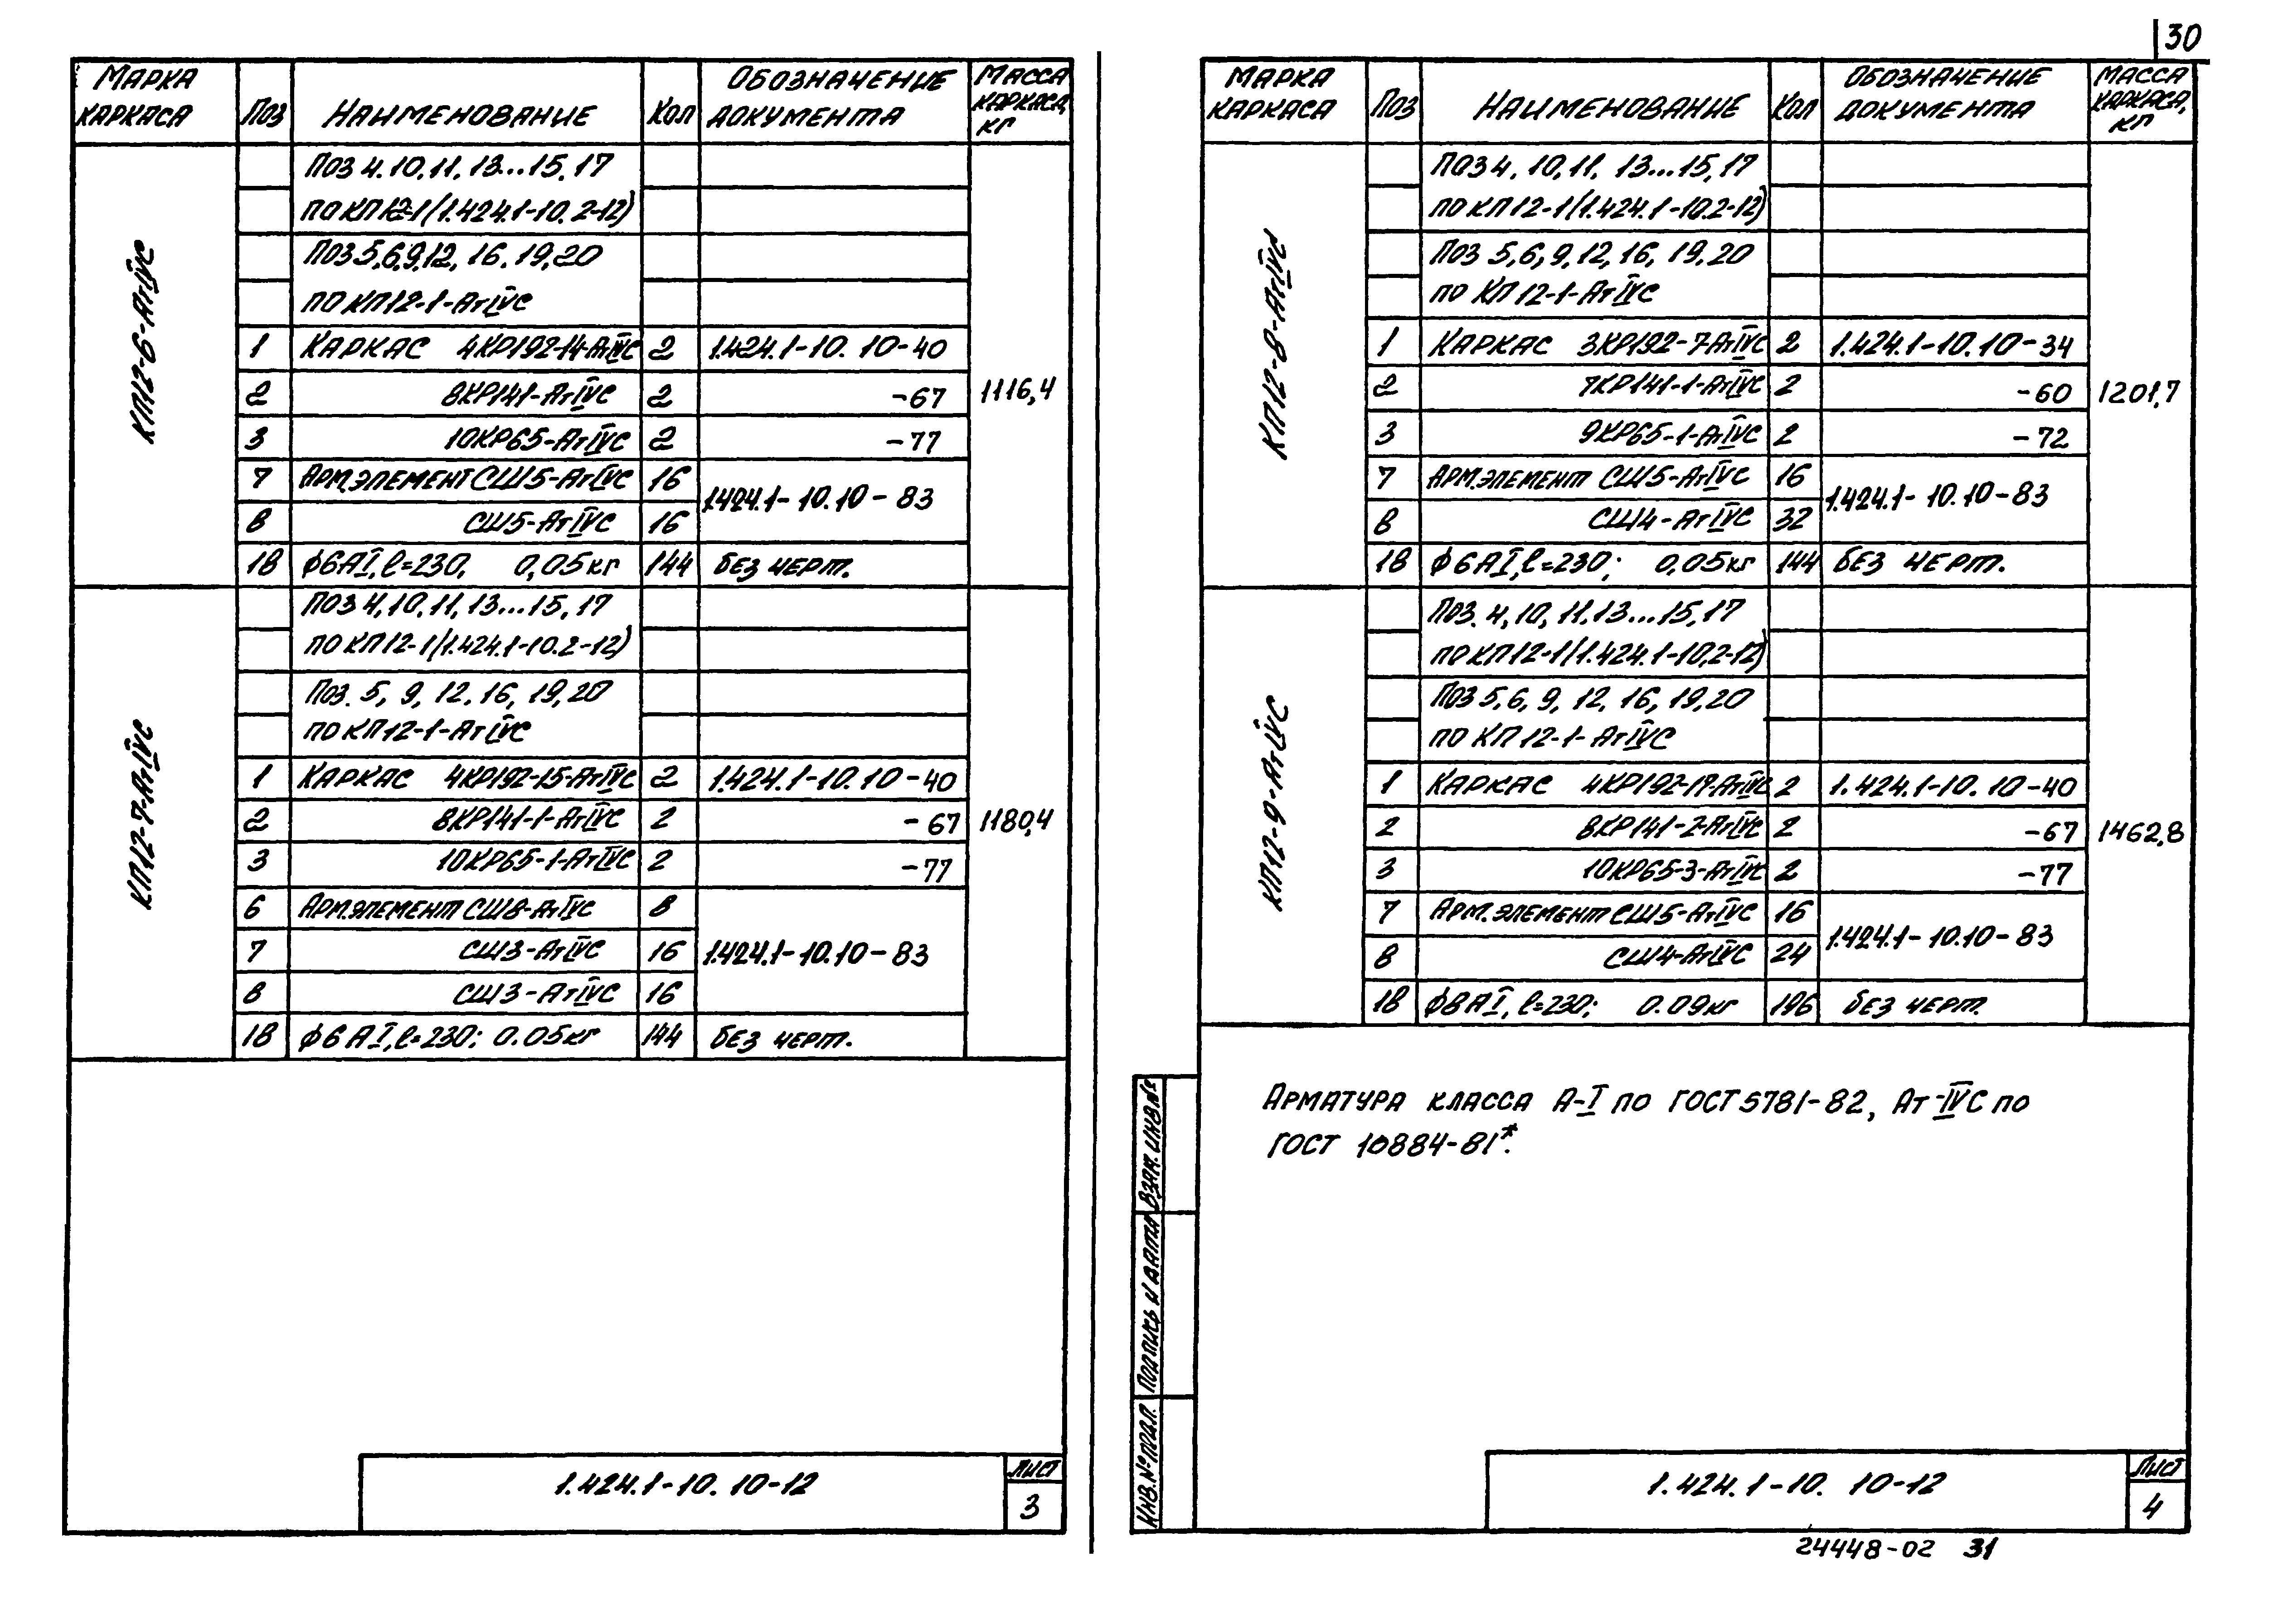 30
Марка каркаса | Поз | Наименование | Кол | Обозначение документа | Масса каркаса, кг
КП12-6-АтIVС
Поз 4. 10, 11, 13...15, 17
по КП12-1 (1.424.1-10. 2-12)
Поз 5,6,9,12, 16. 19,20
по КП12-1-АтIVС
1 | Каркас 4КР192-14-АтIVС | 2 | 1.424.1-10. 10-40
2 | 8КР141-АтIVС | 2 | -67 | 1116,4
3 | 10КР65-АтIVС | 2 | -77
7 | Арм.элемент СШ5-АтIVС | 16 | 1.424.1-10.10-83
8 | СШ5-АтIVС | 16
18 | ф6АI, l=230, 0,05кг | 144 | без черт.
КП12-7-АтIVС
Поз 4, 10, 11, 13...15, 17
по КП12-1 (1.424.1-10.2-12)
Поз. 5, 9, 12, 16, 19, 20
по КП12-1-АтIVС
1 | Каркас 4КР192-15-АтIVС | 2 | 1.424.1-10. 10-40
2 | 8КР141-1-АтIVС | 2 | -67 | 1180,4
3 | 10КР65-1-АтIVС | 2 | -77
6 | Арм.элемент СШ8-АтIVС | 8
7 | СШ3-АтIVС | 16 | 1.424.1-10.10-83
8 | СШ3-АтIVС | 16
18 | ф6 АI, l=230; 0.05кг | 144 | без черт.
1.424.1-10. 10-12
Лист
3
Марка каркаса | Поз | Наименование | Кол | Обозначение документа | Масса каркаса, кг
КП12-8-АтIVС
Поз 4, 10, 11, 13...15, 17
по КП12-1 (1.424.1-10.2-12)
Поз 5,6, 9, 12, 16, 19, 20
по КП12-1-АтIVС
1 | Каркас 3КР192-7АтIVС | 2 | 1.424.1-10.10-34
2 | 7КР141-1-АтIVС | 2 | -60 | 1201,7
3 | 9КР65-1-АтIVС | 2 | -72
7 | Арм.элемент СШ5-АтIVС | 16 | 1.424.1-10.10-83
8 | СШ4-АтIVС | 32
18 | ф6АI, l=230; 0,05кг | 144 | без черт.
КП12-9-АтIVС
Поз. 4, 10, 11. 13...15, 17
по КП12-1 (1.424.1-10,2-12)
Поз 5,6, 9, 12, 16, 19, 20
по КП12-1-АтIVС
1 | Каркас 4КР192-17-АтIVС | 2 | 1.424.1-10. 10-40
2 | 8КР141-2-АтIVС | 2 | -67 | 1462,8
3 | 10КР65-3-АтIVС | 2 | -77
7 | Арм.элемент СШ5-АтIVС | 16 | 1.424.1-10.10-83
8 | СШ4-АтIVС | 24
18 | ф8АI, l=230; 0.09кг | 196 | без черт.
Арматура класса А-I по ГОСТ 5781-82, Ат-IVС по
ГОСТ 10884-81*.
Взам. инв.№
Подпись и дата
Инв.№ подл.
1.424.1-10. 10-12
Лист
4
24448-02 31